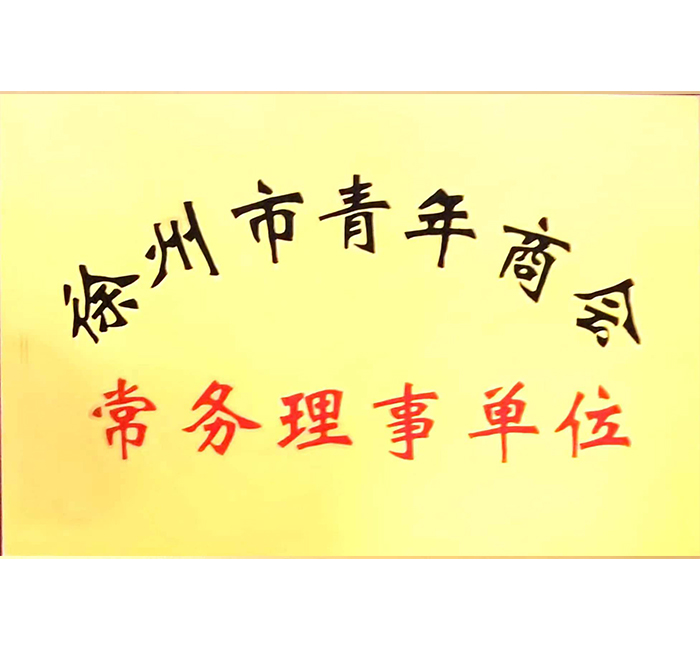 徐州市青年商会
常务理事单位